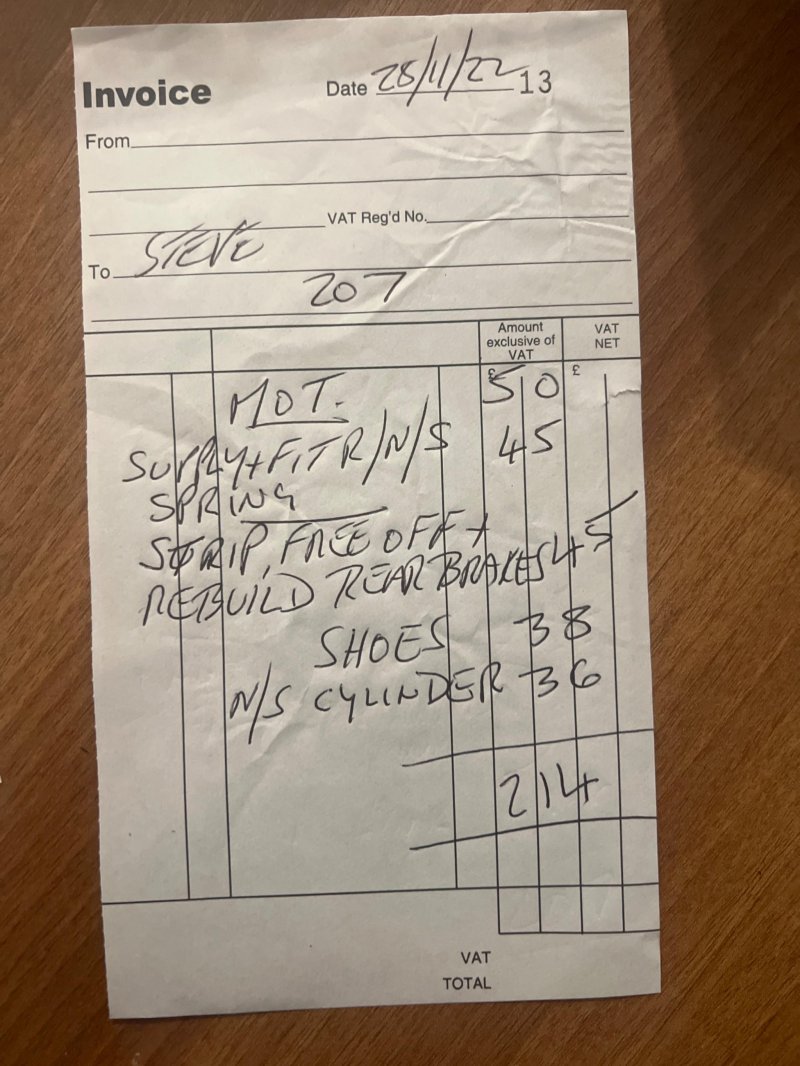 Invoice Date 28/11/22 13
From
VAT Reg'd No.
To STEVE
207
Amount
exclusive of
VAT
VAT
NET
£ £
MOT. 50
SUPPLY + FIT R/N/S 45
SPRING
STRIP, FREE OFF +
REBUILD REAR BRAKES 45
SHOES 38
N/S CYLINDER 36
214
VAT
TOTAL